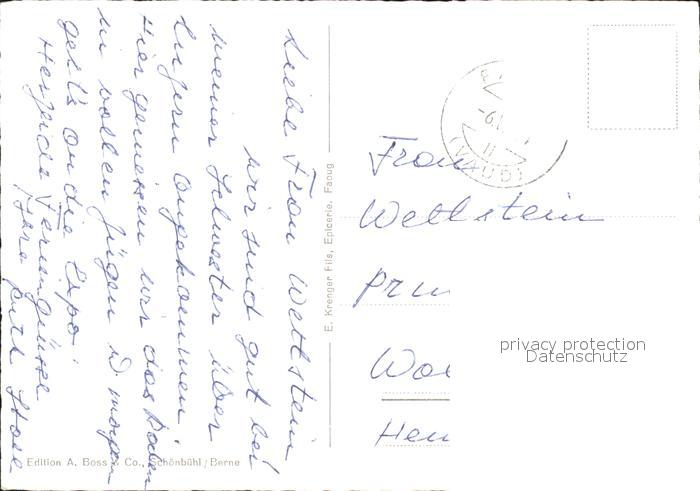 Liebe Frau Wettstein
wir sind gut bei
meiner Schwester über
Luzern angekommen.
Hier geniessen wir das Baden
in vollen Zügen u. morgen
geht's an die Expo!
Herzliche Feriengrüsse
Ihre Ruth
E. Krenger Fils, Epicerie, Faoug
Edition A. Boss & Co., Schönbühl/Berne
-6.
II
(VAUD)
Frau
Wettstein
privacy protection
Datenschutz